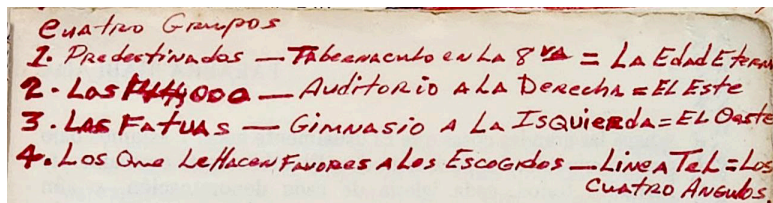 Cuatro Grupos
1. Predestinados — Tabernaculo en La 8va = La Edad Eterna
2. Los 144,000 — Auditorio a La Derecha = El Este
3. Las Fatuas — Gimnasio a La Isquierda = El Oeste
4. Los Que Le Hacen Favores a Los Escogidos — Linea Tel = Los
Cuatro Angulos.